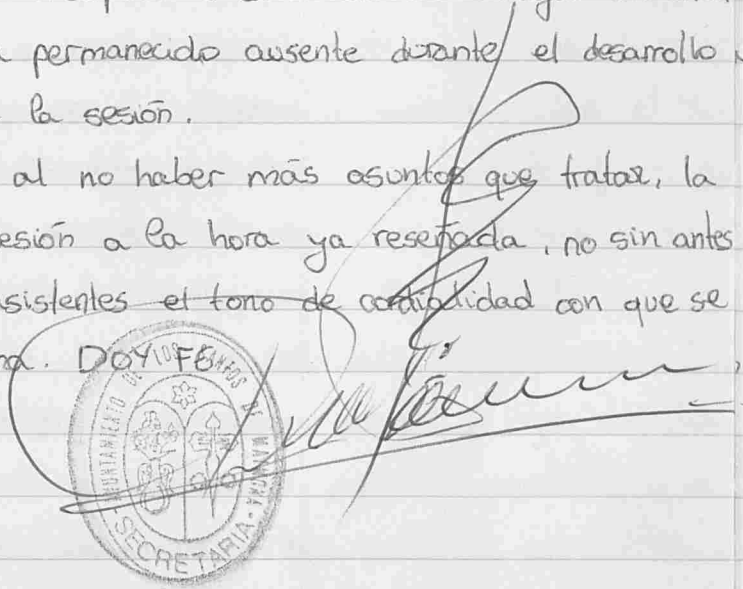 permanecido ausente durante el desarrollo
la sesión.
al no haber más asuntos que tratar, la
esión a la hora ya reseñada, no sin antes
sistentes el tono de cordialidad con que se
DOY FE
AYUNTAMIENTO DE LOS SANTOS DE MAIMONA
SECRETARIA